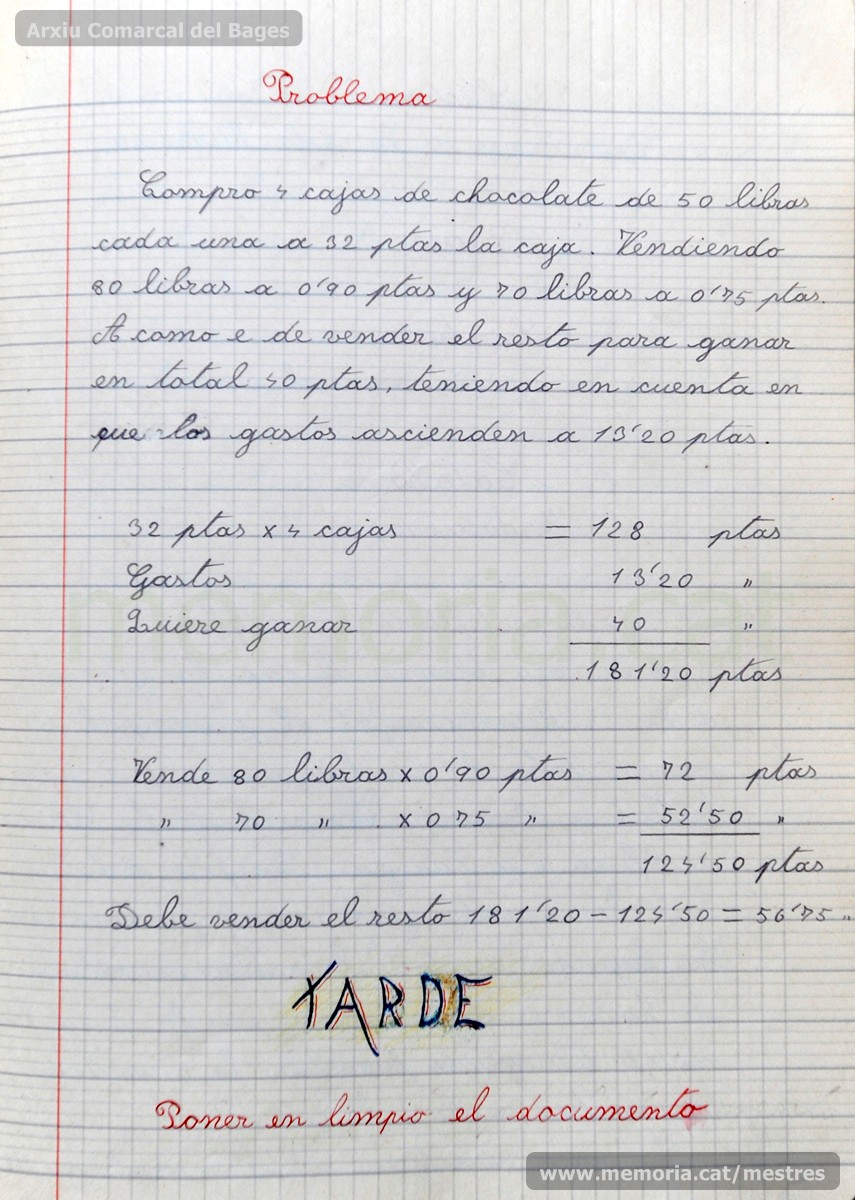 Arxiu Comarcal del Bages
Problema
Compro 4 cajas de chocolate de 50 libras
cada una a 32 ptas la caja. Vendiendo
80 libras a 0'90 ptas y 70 libras a 0'75 ptas.
A como e de vender el resto para ganar
en total 40 ptas, teniendo en cuenta en
que los gastos ascienden a 13'20 ptas.
32 ptas x 4 cajas = 128 ptas
Gastos 13'20 "
Quiere ganar 40 "
181'20 ptas
Vende 80 libras x 0'90 ptas = 72 ptas
" 70 " x 0 75 " = 52'50 "
124'50 ptas
Debe vender el resto 181'20 - 124'50 = 56'75 "
TARDE
Poner en limpio el documento
www.memoria.cat/mestres